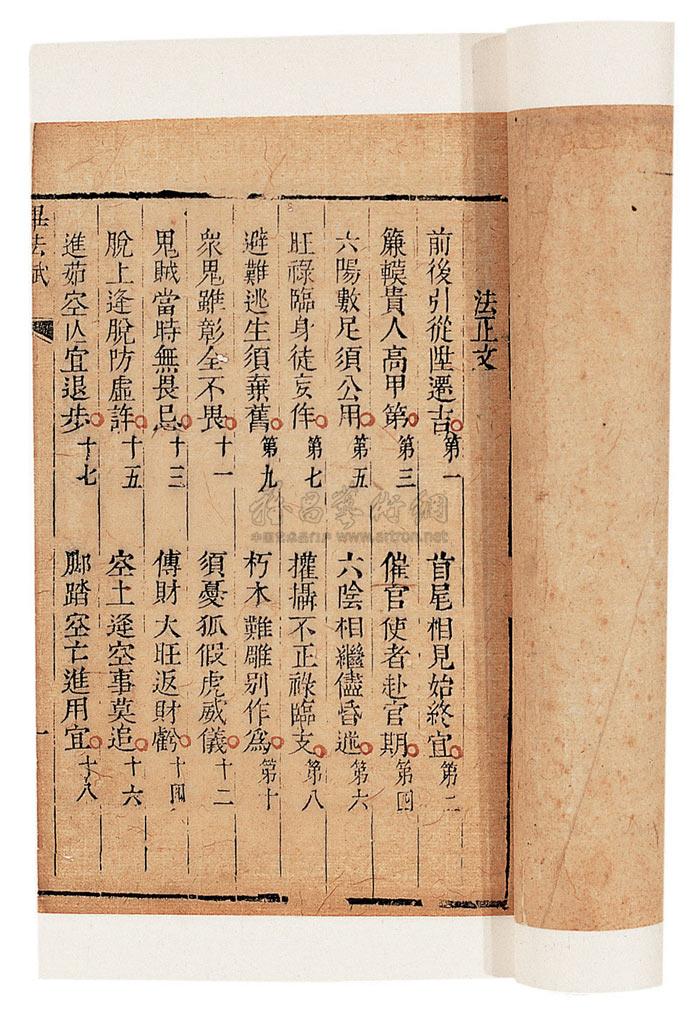 法正文
前後引從陞遷吉第一 首尾相見始終宜第二
簾幙貴人高甲第第三 催官使者赴官期第四
六陽數足須公用第五 六陰相繼儘昏迷第六
旺祿臨身徒妄作第七 權攝不正祿臨支第八
避難逃生須棄舊第九 朽木難雕别作為第十
衆鬼雖彰全不畏十一 須憂狐假虎威儀十二
鬼賊當時無畏忌十三 傳財大旺返財虧十四
脫上逢脫防虛詐十五 空上逢空事莫追十六
進茹空亡宜退步十七 脚踏空亡進用宜十八
畢法賦 一
www.artron.net